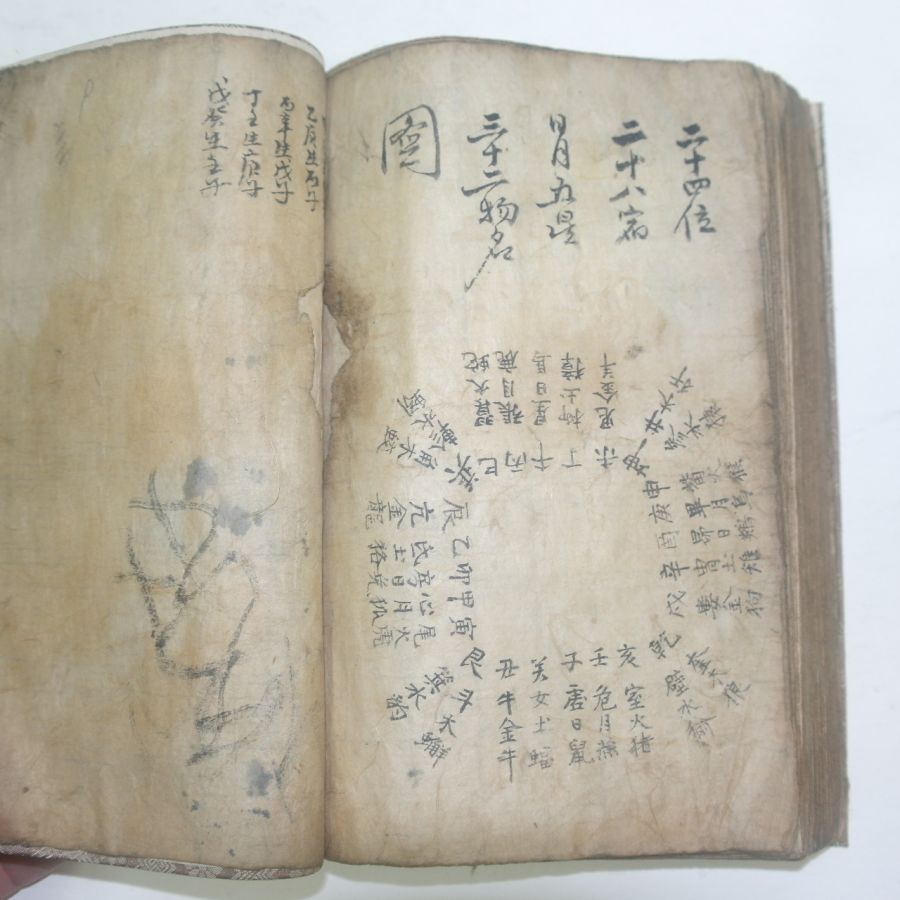 二十四位
二十八宿
日月五星
三十二物名
圖
未鬼金羊
丁柳土獐
午星日馬
丙張月鹿
巳翼火蛇
坤井木犴
參水猿
申觜火猴
庚畢月烏
酉昴日鷄
辛胃土雉
戌婁金狗
乾奎木狼
壁水
亥室火猪
壬危月燕
子虛日鼠
癸女土蝠
丑牛金牛
艮斗木獬
箕水豹
寅尾火虎
甲心月狐
卯房日兎
乙氐土狢
辰亢金龍
巽角木蛟
軫水蚓
乙庚生丙子
丙辛生戊子
丁壬生庚子
戊癸生壬子